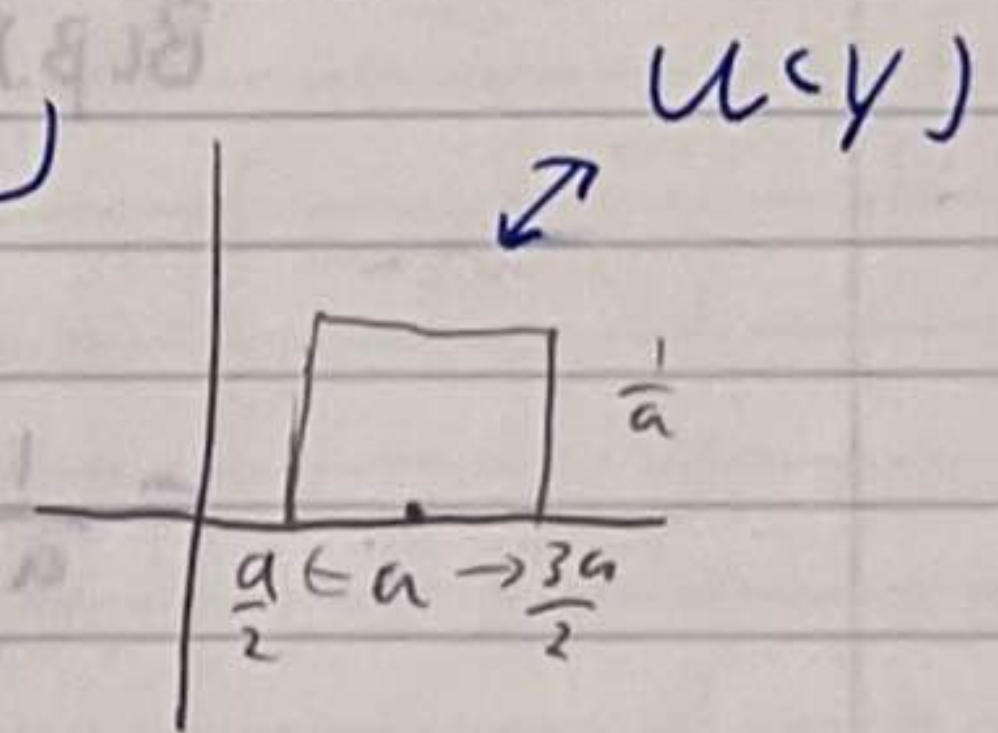 U(y)
)
1/a
a/2 ← a → 3a/2